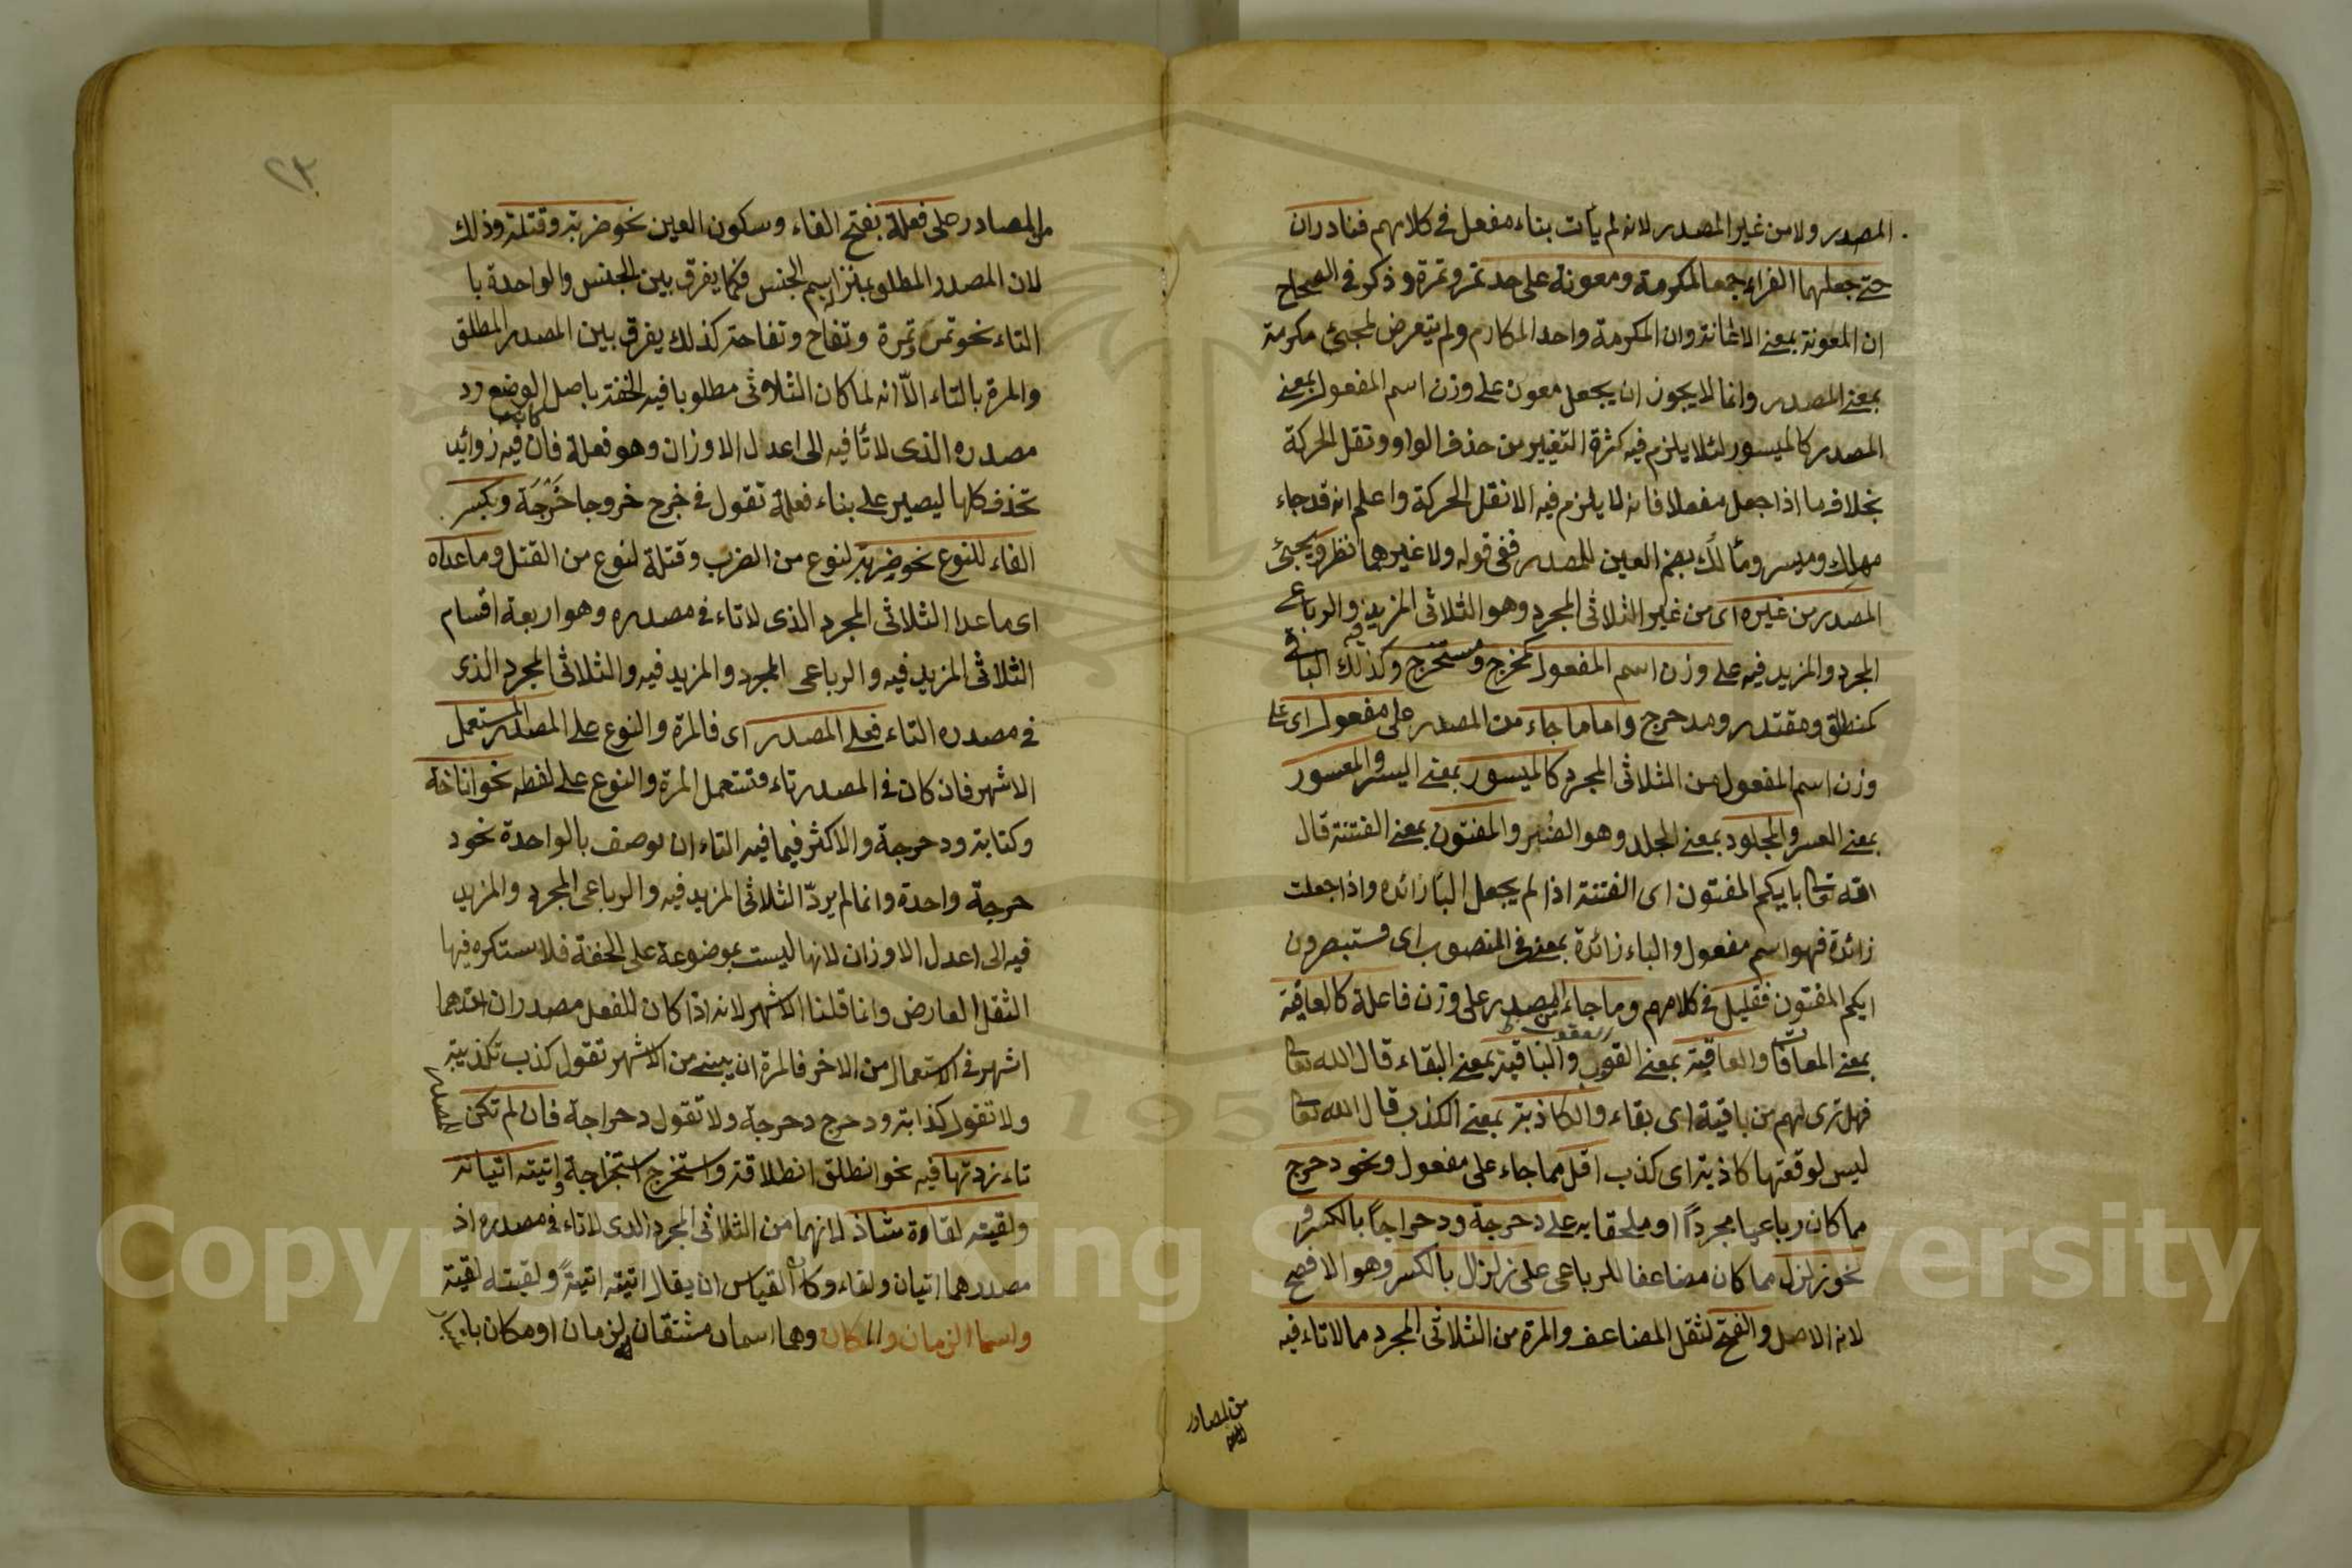 المصدر ولا من غير المصدر لانه لم يأت بناء مفعل فى كلامهم فنادران
حتى جعلهما الفراء جمعا لمكرمة ومعونة على حد تمر وتمرة وذكر فى الصحاح
ان المعونة بمعنى الاعانة وان المكرمة واحد المكارم ولم يتعرض لمجئ مكرمة
بمعنى المصدر وانما لا يجوز ان يجعل معون على وزن اسم المفعول بمعنى
المصدر كالميسور لئلا يلزم فيه كثرة التغيير من حذف الواو ونقل الحركة
بخلاف ما اذا جعل مفعلا فانه لا يلزم فيه الا نقل الحركة واعلم انه قد جاء
مهلك وميسر ومألك بضم العين للمصدر ففى قوله ولا غيرهما نظر ويجئ
المصدر من غيره اى من غير الثلاثى المجرد وهو الثلاثى المزيد فيه والرباعى
المجرد والمزيد فيه على وزن اسم المفعول كمخرج ومستخرج وكذلك الباقى
كمنطلق ومقتدر ومدحرج واما ما جاء من المصدر على مفعول اى على
وزن اسم المفعول من الثلاثى المجرد كالميسور بمعنى اليسر والمعسور
بمعنى العسر والمجلود بمعنى الجلد وهو الصبر والمفتون بمعنى الفتنة قال
الله تعا بايكم المفتون اى الفتنة اذا لم يجعل البا زائده واذا جعلت
زائدة فهو اسم مفعول والباء زائدة بمعنى فى المنصوب اى فستبصرون
ايكم المفتون فقليل فى كلامهم وما جاء من المصدر على وزن فاعلة كالعافية
بمعنى المعافات والعاقبة بمعنى العقوب والباقية بمعنى البقاء قال الله تعا
فهل ترى لهم من باقية اى بقاء والكاذبة بمعنى الكذب قال الله تعا
ليس لوقعتها كاذبة اى كذب اقل مما جاء على مفعول ونحو دحرج
مما كان رباعيا مجرداً او ملحقا به على دحرجة ودحراجاً بالكسر و
نحو زلزل مما كان مضاعفا للرباعى على زلزال بالكسر وهو الافصح
لانه الاصل والفتح لثقل المضاعف والمرة من الثلاثى المجرد مما لا تاء فيه
من المصادر
٢٣
من المصادر على فعلة بفتح الفاء وسكون العين نحو ضربة وقتلة وذلك
لان المصدر المطلق بمنزلة اسم الجنس فكما يفرق بين الجنس والواحدة با
التاء نحو تمر وتمرة وتفاح وتفاحة كذلك يفرق بين المصدر المطلق
والمرة بالتاء الّا انه لما كان الثلاثى مطلوبا فيه الخفة باصل الوضع رد
مصدره الذى لا تا فيه الى اعدل الاوزان وهو فعلة فان كانت فيه زوائد
تحذف كلها ليصير على بناء فعلة تقول فى خرج خروجا خَرْجَة وبكسر
الفاء للنوع نحو ضربة لنوع من الضرب وقتلة لنوع من القتل وما عداه
اى ما عدا الثلاثى المجرد الذى لا تاء فى مصدره وهو اربعة اقسام
الثلاثى المزيد فيه والرباعى المجرد والمزيد فيه والثلاثى المجرد الذى
فى مصدره التاء فعلى المصدر اى فالمرة والنوع على المصدر المستعمل
الاشهر فان كان فى المصدر تاء فتستعمل المرة والنوع على لفظه نحو اناخة
وكتابة ودحرجة والاكثر فيما فيه التاء ان يوصف بالواحدة نحو د
حرجة واحدة وانما لم يردّ الثلاثى المزيد فيه والرباعى المجرد والمزيد
فيه الى اعدل الاوزان لانها ليست بموضوعة على الخفة فلا يستكره فيها
الثقل العارض وانما قلنا الاشهر لانه اذا كان للفعل مصدران احدهما
اشهر فى الاستعمال من الاخر فالمرة ان يبنى من الاشهر تقول كذب تكذيبة
ولا تقول كذابة ودحرج دحرجة ولا تقول دحراجة فان لم تكن
تاء زدتها فيه نحو انطلق انطلاقة واستخرج استخراجة واتيته اتيانة
ولقيته لقاءة شاذ لانهما من الثلاثى المجرد الذى لا تاء فى مصدره اذ
مصدرهما اتيان ولقاء وكان القياس ان يقال اتيته اتيةً ولقيته لقية
واسما الزمان والمكان وهما اسمان مشتقان لزمان او مكان
Copyright © King Saud University
195